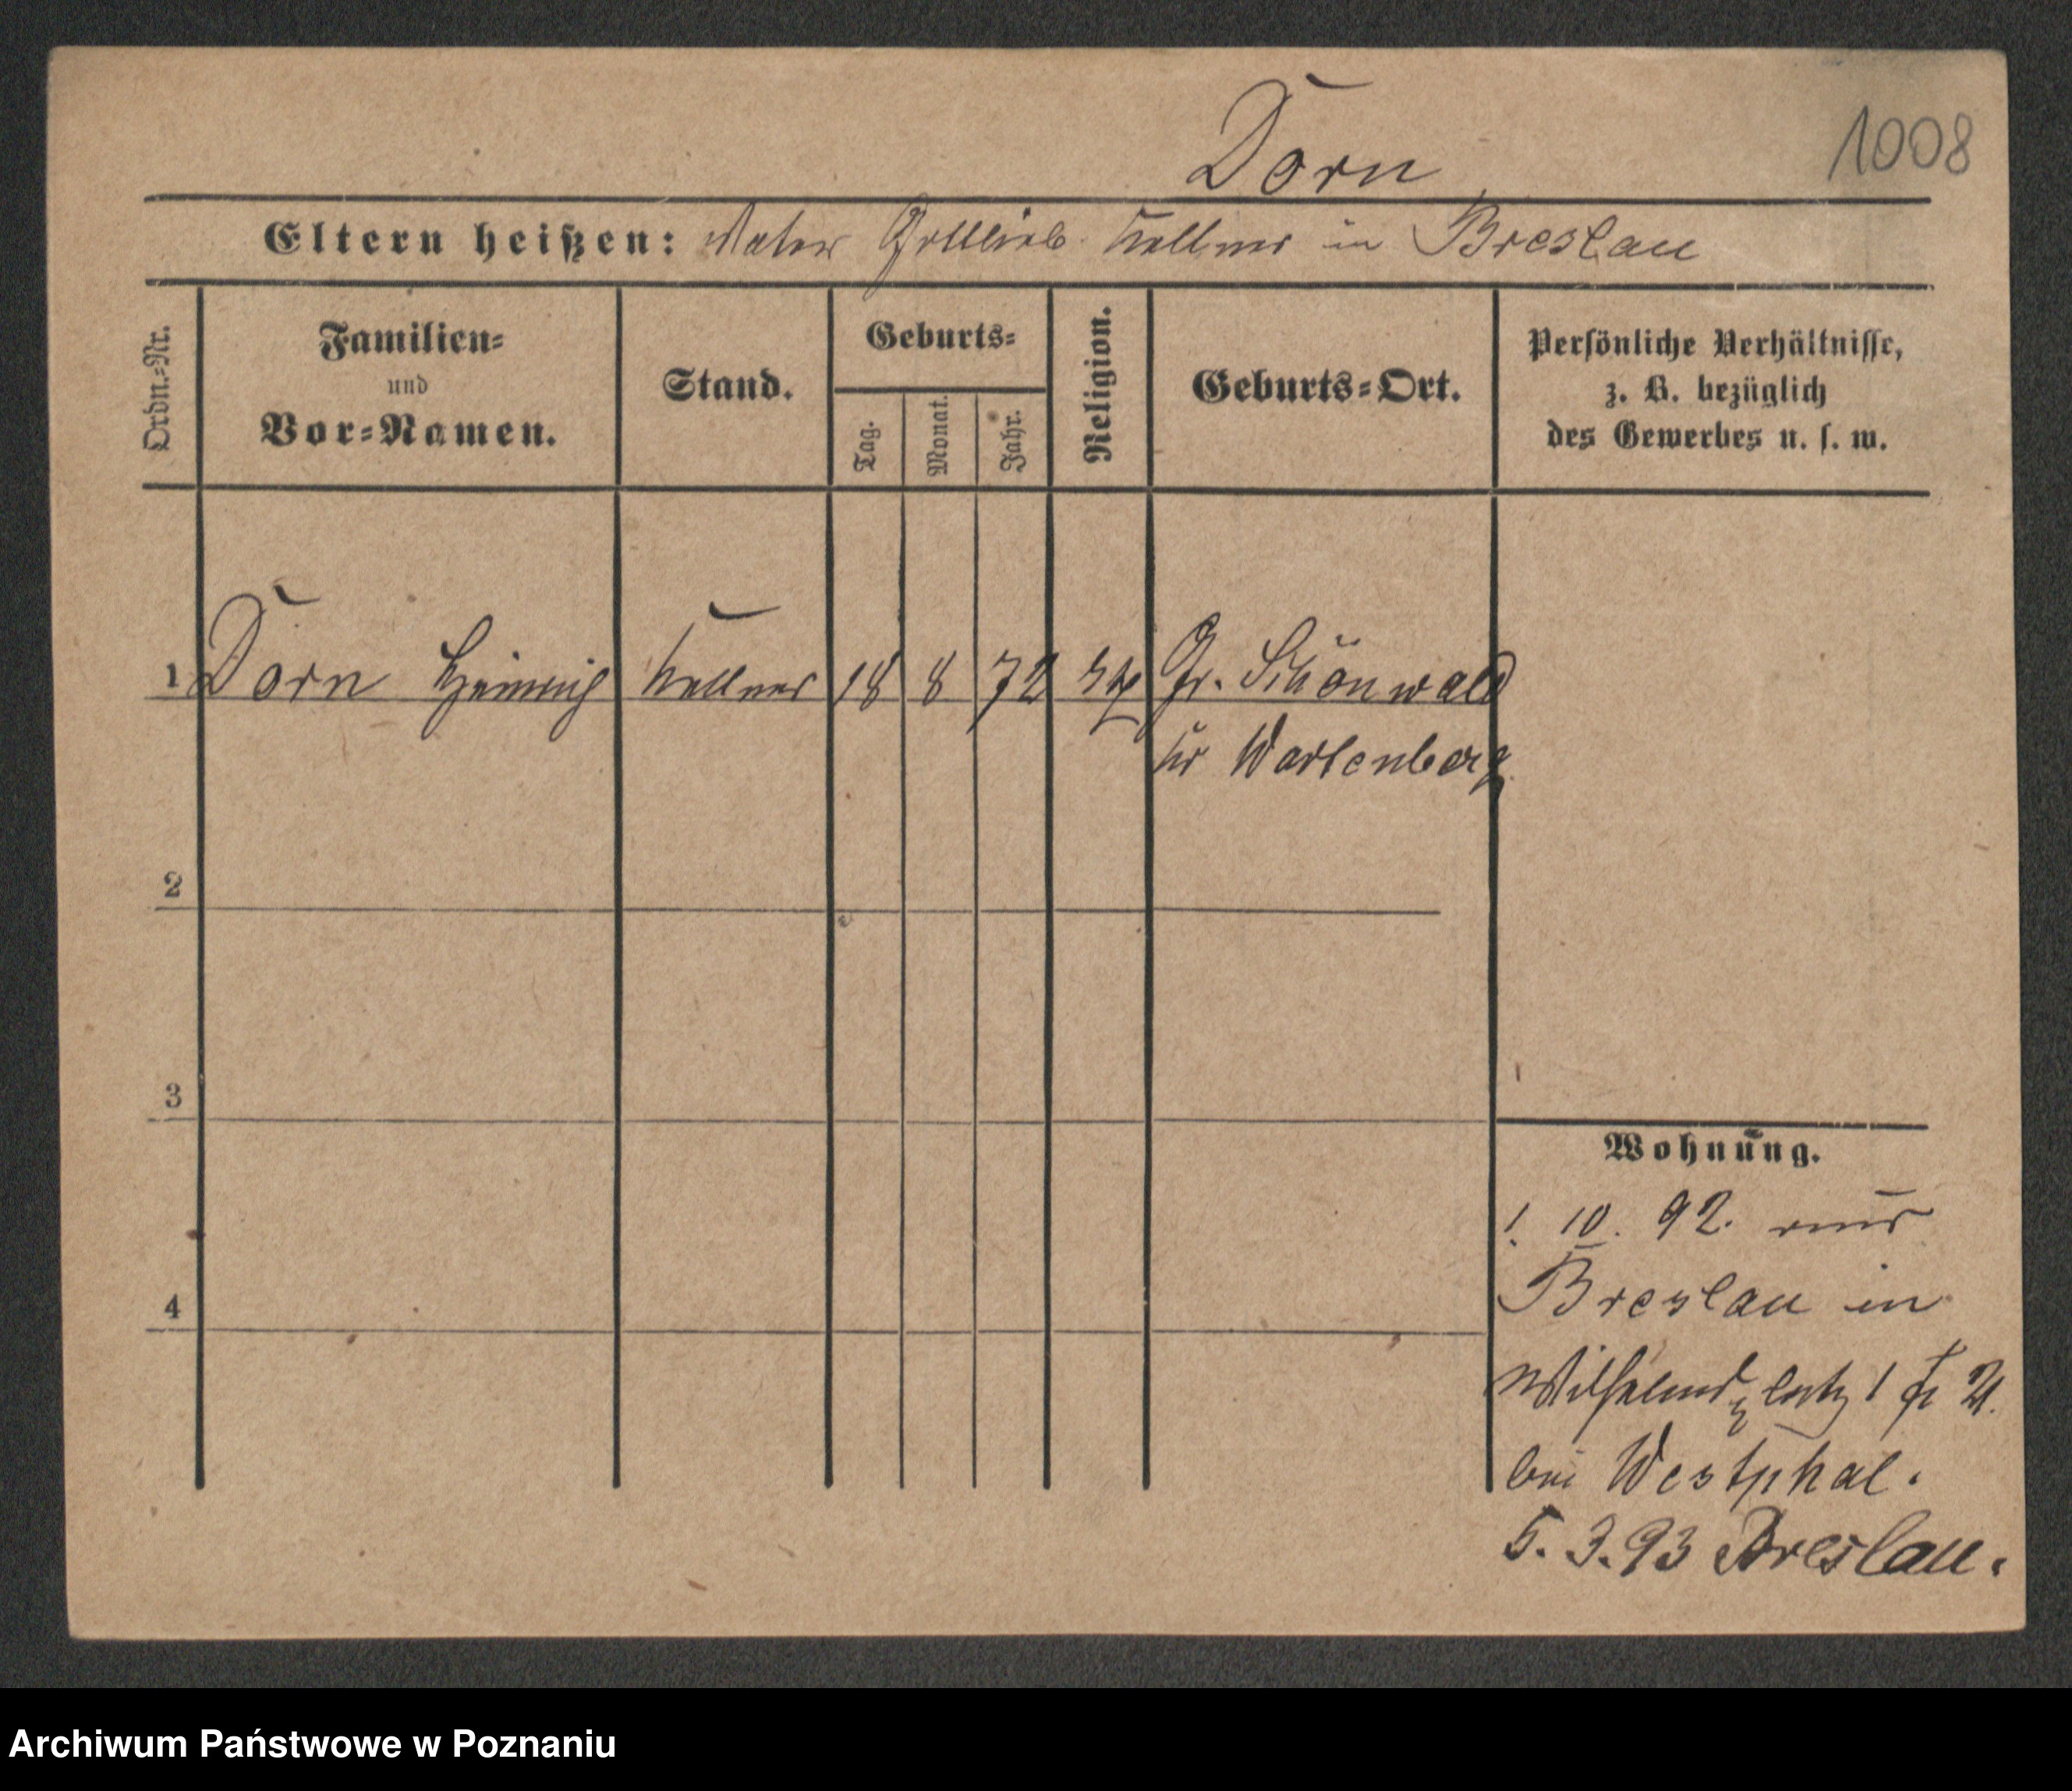 Dorn
1008
Eltern heißen: Vater Gottlieb Kellner in Breslau
Ordn.=Nr.
Familien=
und
Vor=Namen.
Stand.
Geburts=
Tag.
Monat.
Jahr.
Religion.
Geburts=Ort.
Persönliche Verhältnisse,
z. B. bezüglich
des Gewerbes u. s. w.
1 Dorn Heinrich Kellner 18 8 72 Gr. Schönwald
Kr Wartenberg
2
3
4
Wohnung.
1. 10. 92. aus
Breslau in
Wilhelmsplatz 1
bei Westphal.
5. 3. 93 Breslau.
Archiwum Państwowe w Poznaniu